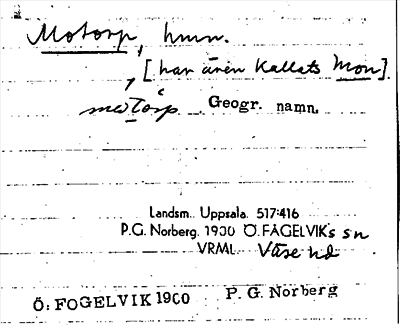 Motorp, hmn.
[har även kallats Mon]
mωtòrp Geogr. namn.
Landsm. Uppsala. 517:416
P.G. Norberg. 1900 Ö. FÅGELVIKs sn
VRML. Väse hd
Ö: FOGELVIK 1900 P. G. Norberg